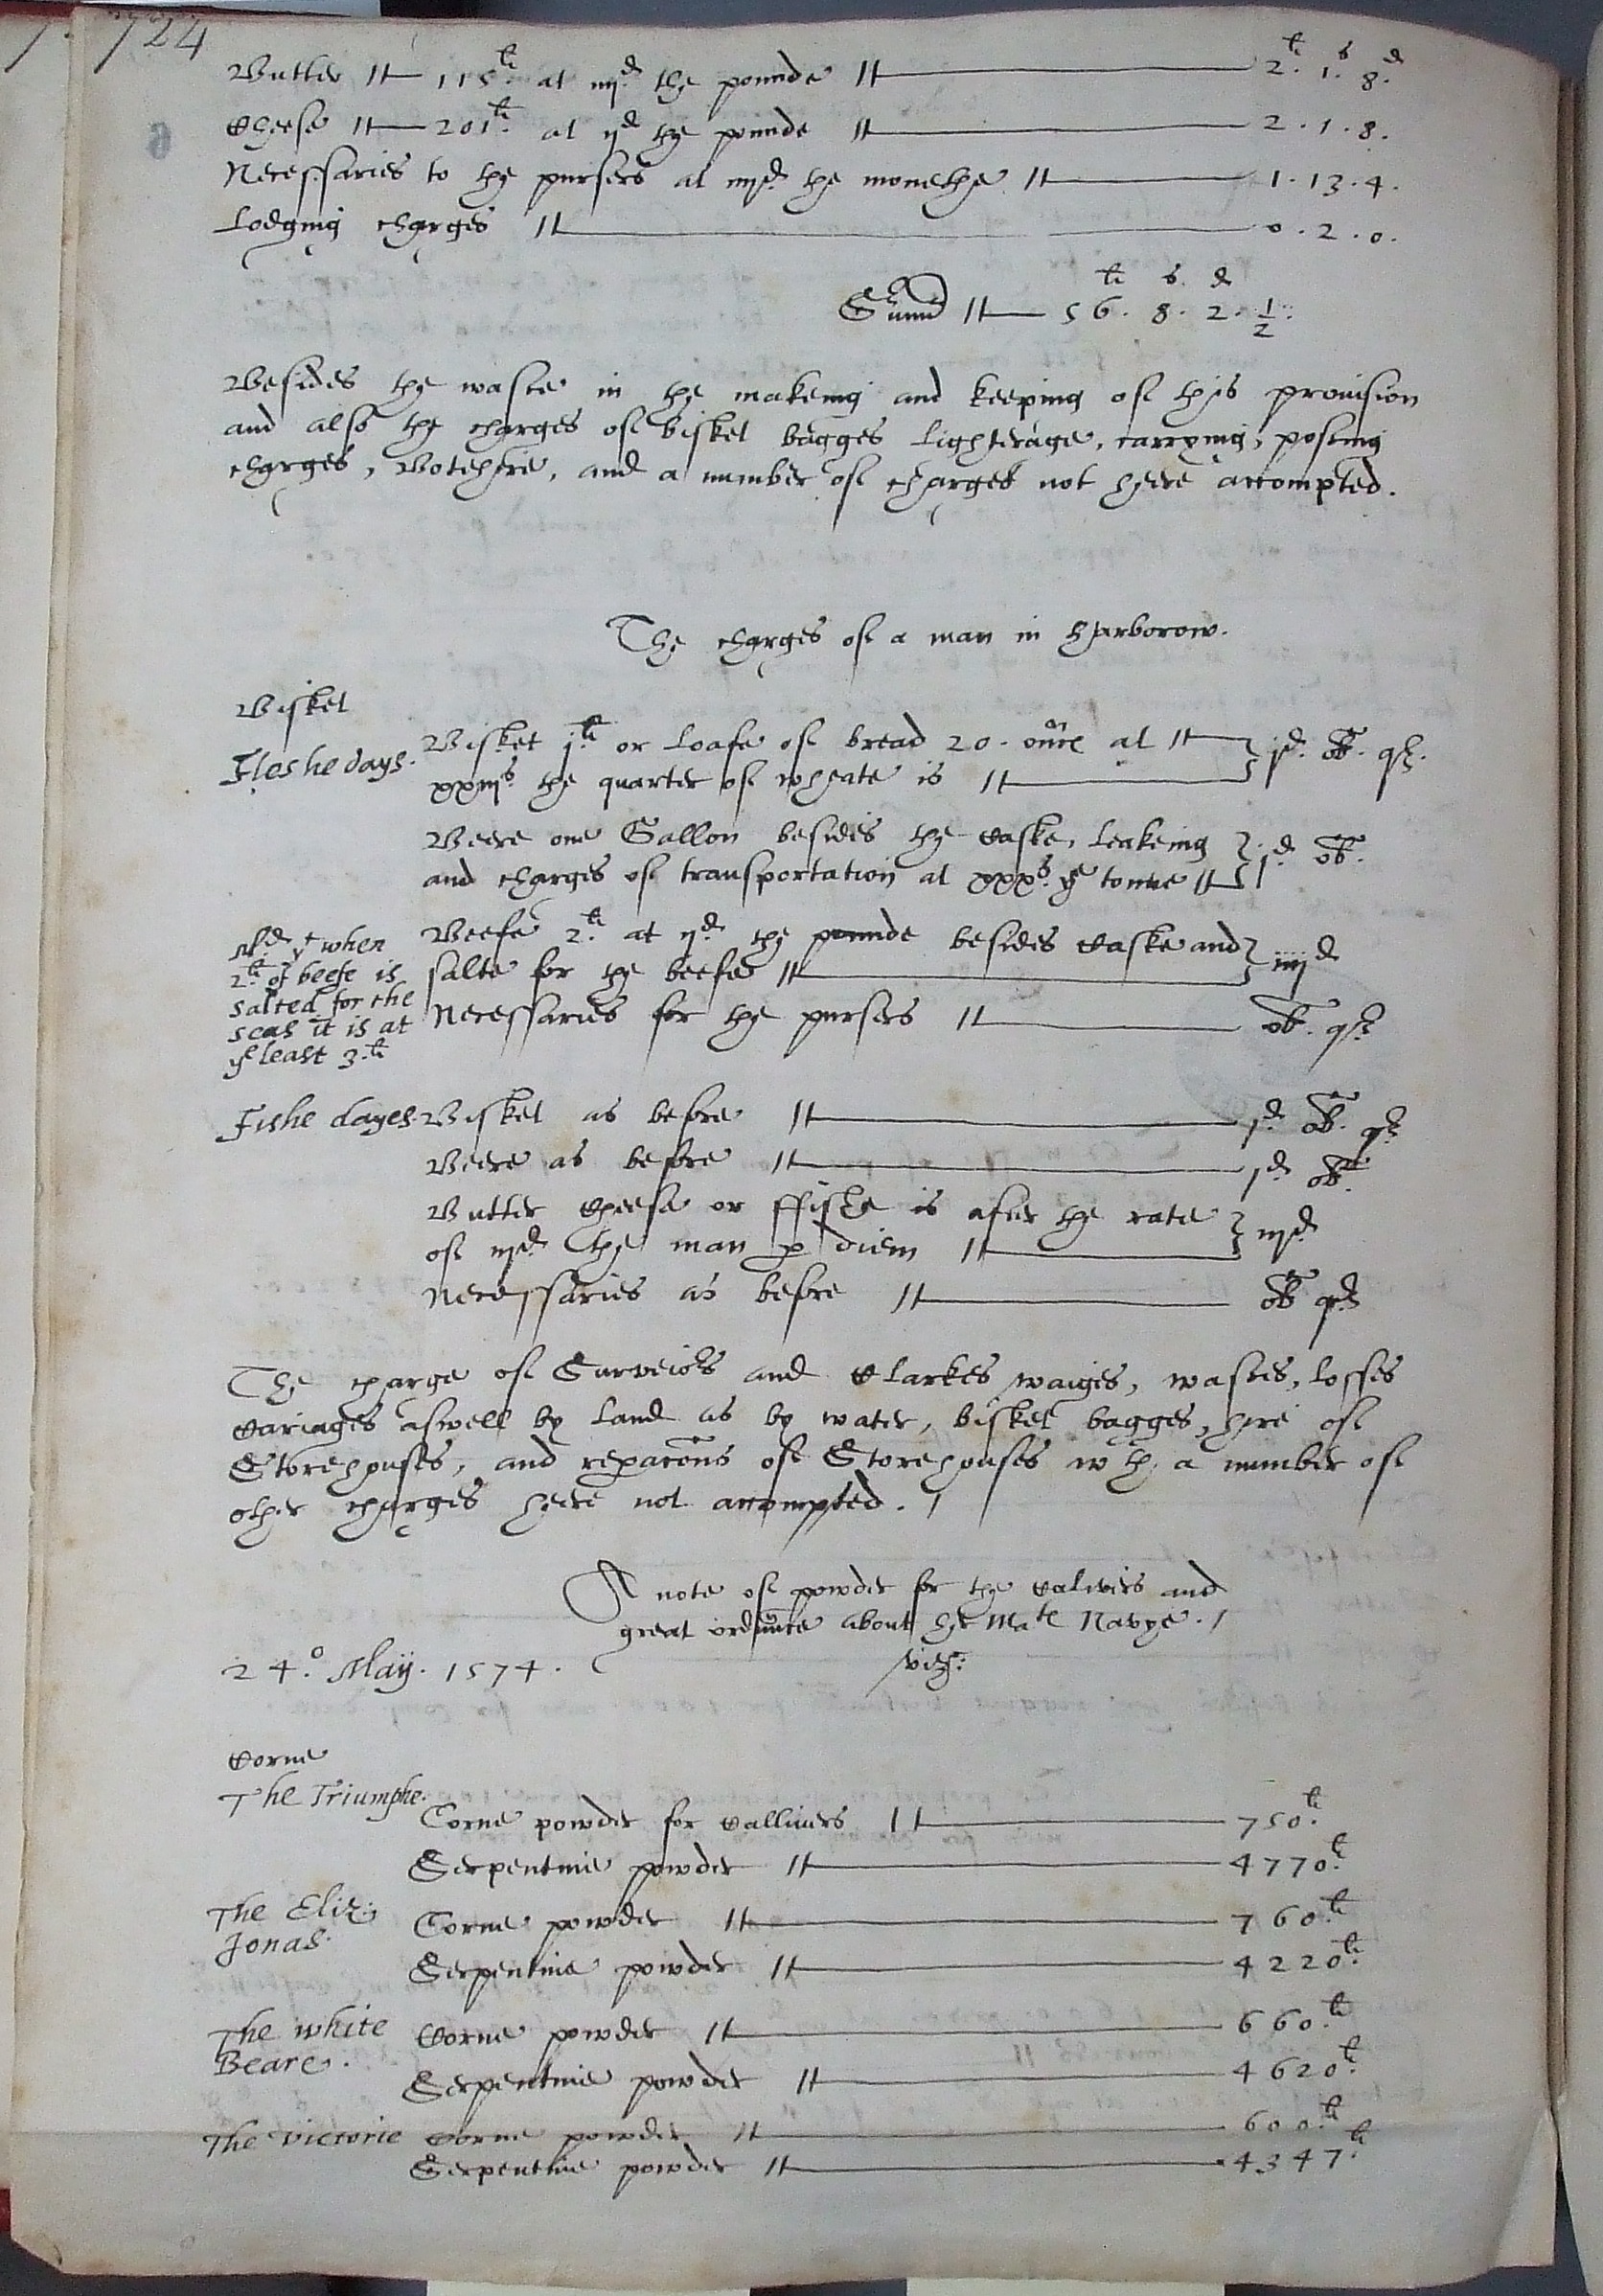 724
Butter 115li. at iiijd. the pounde 2li. 1s. 8d.
Cheese 201li. at ijd the pounde 2. 1. 8.
Necessaries to the pursers at iiijd. the monethe 1. 13. 4.
Lodging charges 0. 2. 0.
li s d
Summa 56. 8. 2. 1/2.
Besides the waste in the makeing and keeping of this provision
and also the charges of bisket bagges lighterage, carrying, posting
charges, Botehire, and a number of charges not heere accompted.
The charges of a man in harborow.
Bisket
Fleshe days.
Bisket jli. or loafe of bread 20. ounc at
xxiijs. the quarter of wheate is jd. ob. q.
Beere one Gallon besides the Caske, leakeing
and charges of transportation at xxxs. ye tonne jd. ob.
Beefe 2li. at ijd. the pounde besides Caske and
salte for the beefe iiijd
Necessaries for the pursers ob. q
Md. yt when
2li. of beefe is
salted for the
seas it is at
ye least 3.li
Fishe dayes. Bisket as before jd. ob. q
Beere as before jd. ob.
Butter Cheese or ffishe is after the rate
of iijd. the man p diem iijd.
Necessaries as before ob q
The charge of Surveiors and Clarkes waiges, wastes, losses
Cariages aswell by land as by water, bisket bagges, hire of
Storehouses, and reparacons of Storehouses wth a number of
other charges heere not accompted.
A note of powder for the Calivers and
great ordnnce about her Mate Navye.
24.o Maij. 1574. vizt:
Corne
The Triumphe.
Corne powder for Callivers 750li.
Serpentine powder 4770li.
The Eliz:
Jonas.
Corne powder 760li.
Serpentine powder 4220li.
The white
Beare.
Corne powder 660li.
Serpentine powder 4620li.
The Victorie Corne powder 600li.
Serpentine powder 4347li.